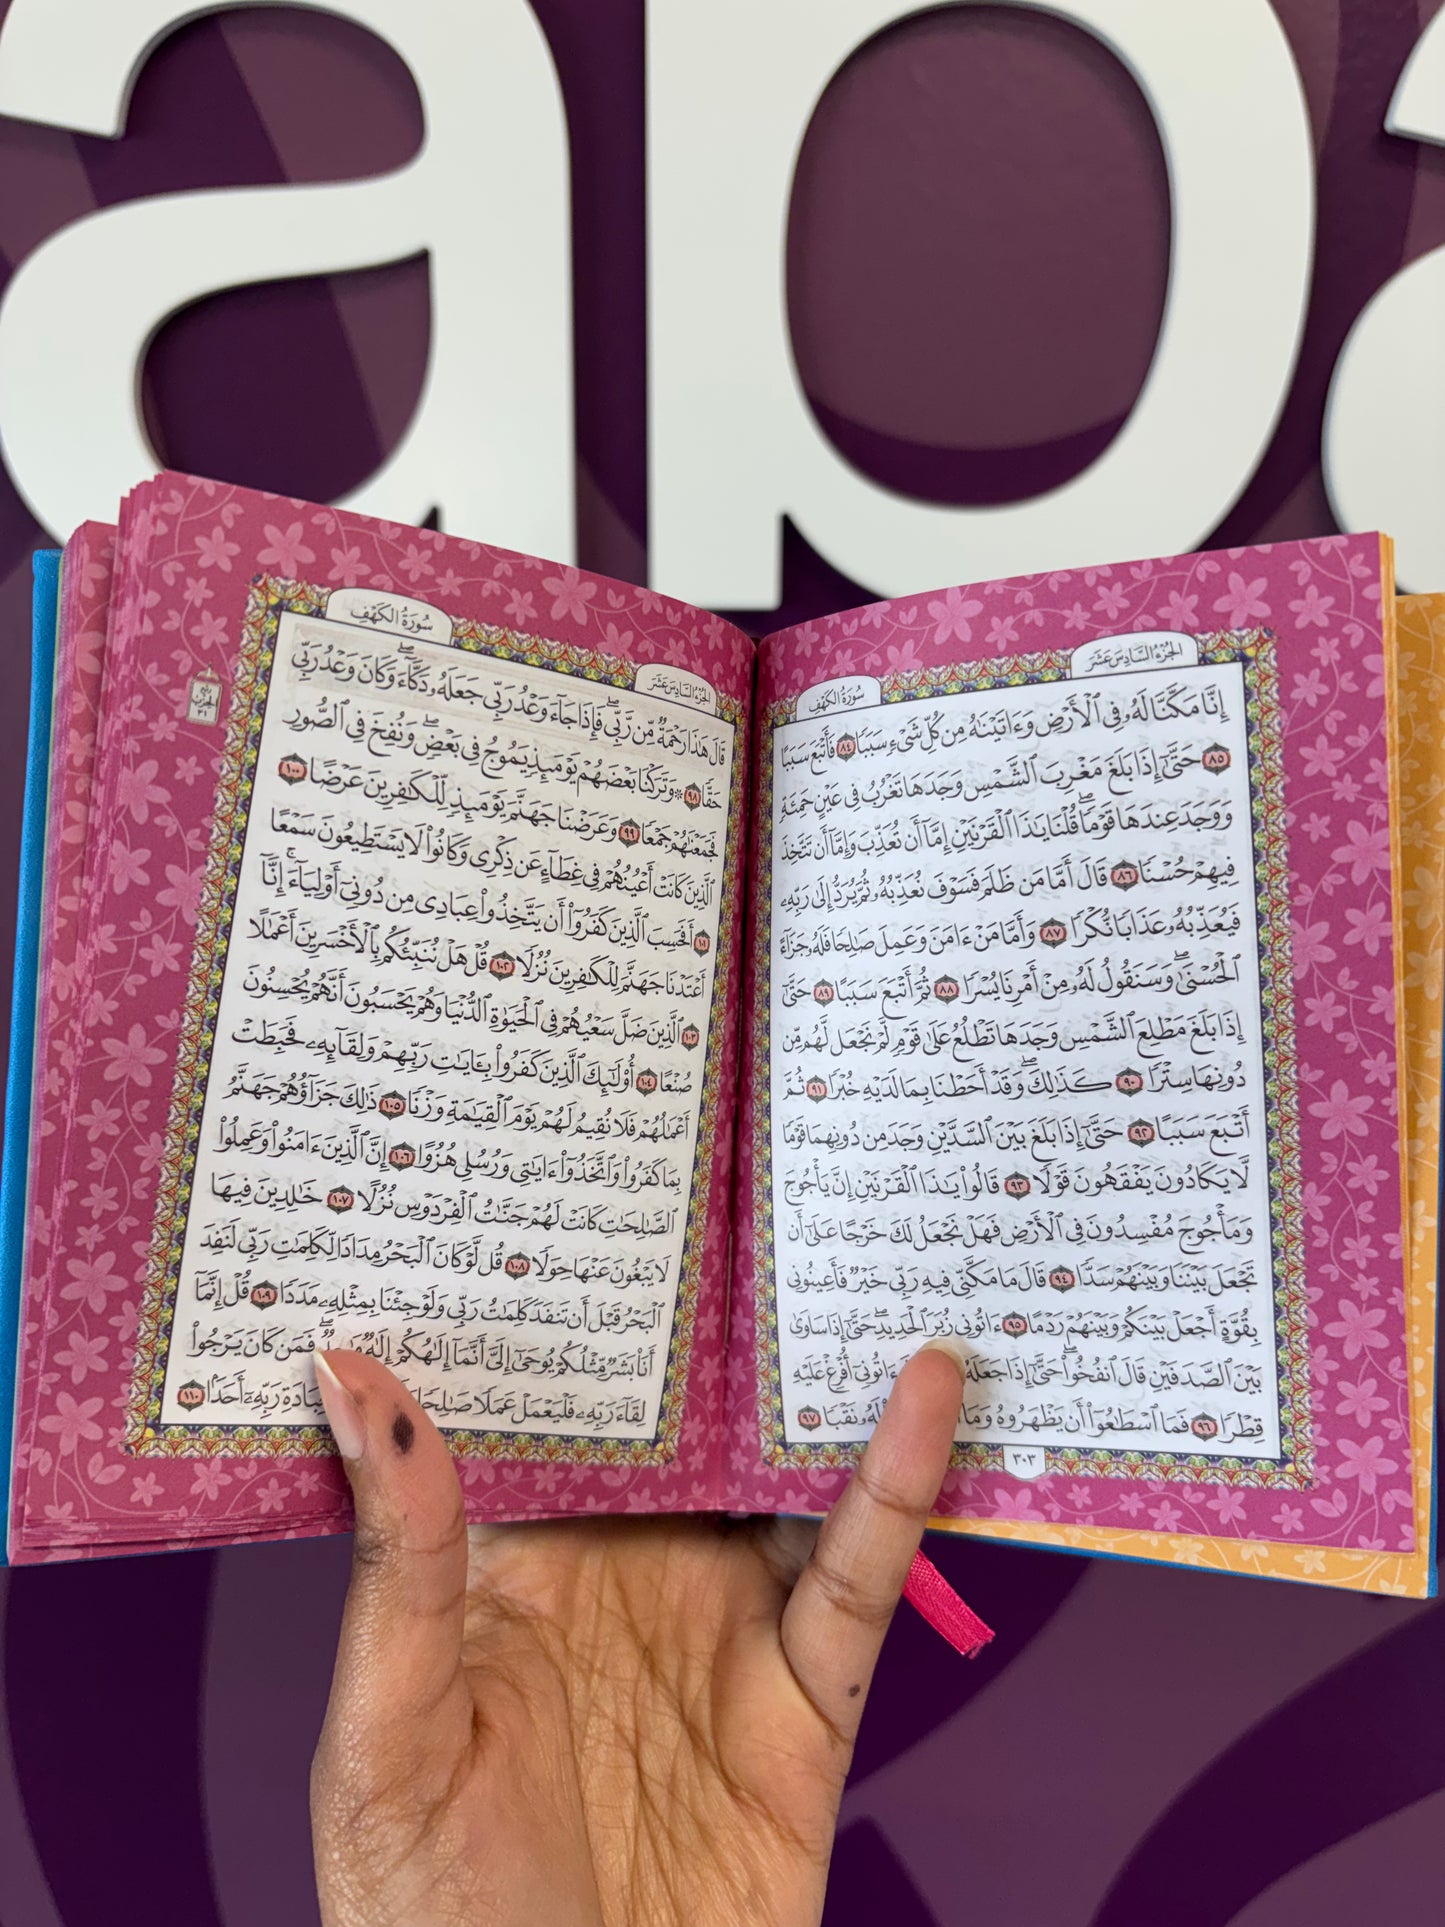 apa
الجزء السادس عشر
سورة الكهف
إِنَّا مَكَّنَّا لَهُۥ فِي ٱلْأَرْضِ وَءَاتَيْنَٰهُ مِن كُلِّ شَىْءٍ سَبَبًا ٨٤ فَأَتْبَعَ سَبَبًا
٨٥ حَتَّىٰٓ إِذَا بَلَغَ مَغْرِبَ ٱلشَّمْسِ وَجَدَهَا تَغْرُبُ فِي عَيْنٍ حَمِئَةٍ
وَوَجَدَ عِندَهَا قَوْمًا ۖ قُلْنَا يَٰذَا ٱلْقَرْنَيْنِ إِمَّآ أَن تُعَذِّبَ وَإِمَّآ أَن تَتَّخِذَ
فِيهِمْ حُسْنًا ٨٦ قَالَ أَمَّا مَن ظَلَمَ فَسَوْفَ نُعَذِّبُهُۥ ثُمَّ يُرَدُّ إِلَىٰ رَبِّهِۦ
فَيُعَذِّبُهُۥ عَذَابًا نُّكْرًا ٨٧ وَأَمَّا مَنْ ءَامَنَ وَعَمِلَ صَٰلِحًا فَلَهُۥ جَزَآءً
ٱلْحُسْنَىٰ ۖ وَسَنَقُولُ لَهُۥ مِنْ أَمْرِنَا يُسْرًا ٨٨ ثُمَّ أَتْبَعَ سَبَبًا ٨٩ حَتَّىٰٓ
إِذَا بَلَغَ مَطْلِعَ ٱلشَّمْسِ وَجَدَهَا تَطْلُعُ عَلَىٰ قَوْمٍ لَّمْ نَجْعَل لَّهُم مِّن
دُونِهَا سِتْرًا ٩٠ كَذَٰلِكَ ۖ وَقَدْ أَحَطْنَا بِمَا لَدَيْهِ خُبْرًا ٩١ ثُمَّ
أَتْبَعَ سَبَبًا ٩٢ حَتَّىٰٓ إِذَا بَلَغَ بَيْنَ ٱلسَّدَّيْنِ وَجَدَ مِن دُونِهِمَا قَوْمًا
لَّا يَكَادُونَ يَفْقَهُونَ قَوْلًا ٩٣ قَالُوا۟ يَٰذَا ٱلْقَرْنَيْنِ إِنَّ يَأْجُوجَ
وَمَأْجُوجَ مُفْسِدُونَ فِي ٱلْأَرْضِ فَهَلْ نَجْعَلُ لَكَ خَرْجًا عَلَىٰٓ أَن
تَجْعَلَ بَيْنَنَا وَبَيْنَهُمْ سَدًّا ٩٤ قَالَ مَا مَكَّنِّي فِيهِ رَبِّي خَيْرٌ فَأَعِينُونِي
بِقُوَّةٍ أَجْعَلْ بَيْنَكُمْ وَبَيْنَهُمْ رَدْمًا ٩٥ ءَاتُونِي زُبَرَ ٱلْحَدِيدِ ۖ حَتَّىٰٓ إِذَا سَاوَىٰ
بَيْنَ ٱلصَّدَفَيْنِ قَالَ ٱنفُخُوا۟ ۖ حَتَّىٰٓ إِذَا جَعَلَهُۥ ءَاتُونِيٓ أُفْرِغْ عَلَيْهِ
قِطْرًا ٩٦ فَمَا ٱسْطَٰعُوٓا۟ أَن يَظْهَرُوهُ وَمَا لَهُۥ نَقْبًا ٩٧
٣٠٣
الجزء السادس عشر
سورة الكهف
قَالَ هَٰذَا رَحْمَةٌ مِّن رَّبِّي ۖ فَإِذَا جَآءَ وَعْدُ رَبِّي جَعَلَهُۥ دَكَّآءَ ۖ وَكَانَ وَعْدُ رَبِّي
حَقًّا ٩٨ ۞ وَتَرَكْنَا بَعْضَهُمْ يَوْمَئِذٍ يَمُوجُ فِي بَعْضٍ ۖ وَنُفِخَ فِي ٱلصُّورِ
فَجَمَعْنَٰهُمْ جَمْعًا ٩٩ وَعَرَضْنَا جَهَنَّمَ يَوْمَئِذٍ لِّلْكَٰفِرِينَ عَرْضًا ١٠٠
ٱلَّذِينَ كَانَتْ أَعْيُنُهُمْ فِي غِطَآءٍ عَن ذِكْرِي وَكَانُوا۟ لَا يَسْتَطِيعُونَ سَمْعًا
١٠١ أَفَحَسِبَ ٱلَّذِينَ كَفَرُوٓا۟ أَن يَتَّخِذُوا۟ عِبَادِي مِن دُونِيٓ أَوْلِيَآءَ ۚ إِنَّآ
أَعْتَدْنَا جَهَنَّمَ لِلْكَٰفِرِينَ نُزُلًا ١٠٢ قُلْ هَلْ نُنَبِّئُكُم بِٱلْأَخْسَرِينَ أَعْمَٰلًا
١٠٣ ٱلَّذِينَ ضَلَّ سَعْيُهُمْ فِي ٱلْحَيَوٰةِ ٱلدُّنْيَا وَهُمْ يَحْسَبُونَ أَنَّهُمْ يُحْسِنُونَ
صُنْعًا ١٠٤ أُو۟لَٰٓئِكَ ٱلَّذِينَ كَفَرُوا۟ بِـَٔايَٰتِ رَبِّهِمْ وَلِقَآئِهِۦ فَحَبِطَتْ
أَعْمَٰلُهُمْ فَلَا نُقِيمُ لَهُمْ يَوْمَ ٱلْقِيَٰمَةِ وَزْنًا ١٠٥ ذَٰلِكَ جَزَآؤُهُمْ جَهَنَّمُ
بِمَا كَفَرُوا۟ وَٱتَّخَذُوٓا۟ ءَايَٰتِي وَرُسُلِي هُزُوًا ١٠٦ إِنَّ ٱلَّذِينَ ءَامَنُوا۟ وَعَمِلُوا۟
ٱلصَّٰلِحَٰتِ كَانَتْ لَهُمْ جَنَّٰتُ ٱلْفِرْدَوْسِ نُزُلًا ١٠٧ خَٰلِدِينَ فِيهَا
لَا يَبْغُونَ عَنْهَا حِوَلًا ١٠٨ قُل لَّوْ كَانَ ٱلْبَحْرُ مِدَادًا لِّكَلِمَٰتِ رَبِّي لَنَفِدَ
ٱلْبَحْرُ قَبْلَ أَن تَنفَدَ كَلِمَٰتُ رَبِّي وَلَوْ جِئْنَا بِمِثْلِهِۦ مَدَدًا ١٠٩ قُلْ إِنَّمَآ
أَنَا۠ بَشَرٌ مِّثْلُكُمْ يُوحَىٰٓ إِلَيَّ أَنَّمَآ إِلَٰهُكُمْ إِلَٰهٌ وَٰحِدٌ ۖ فَمَن كَانَ يَرْجُوا۟
لِقَآءَ رَبِّهِۦ فَلْيَعْمَلْ عَمَلًا صَٰلِحًا بِعِبَادَةِ رَبِّهِۦٓ أَحَدًۢا ١١٠